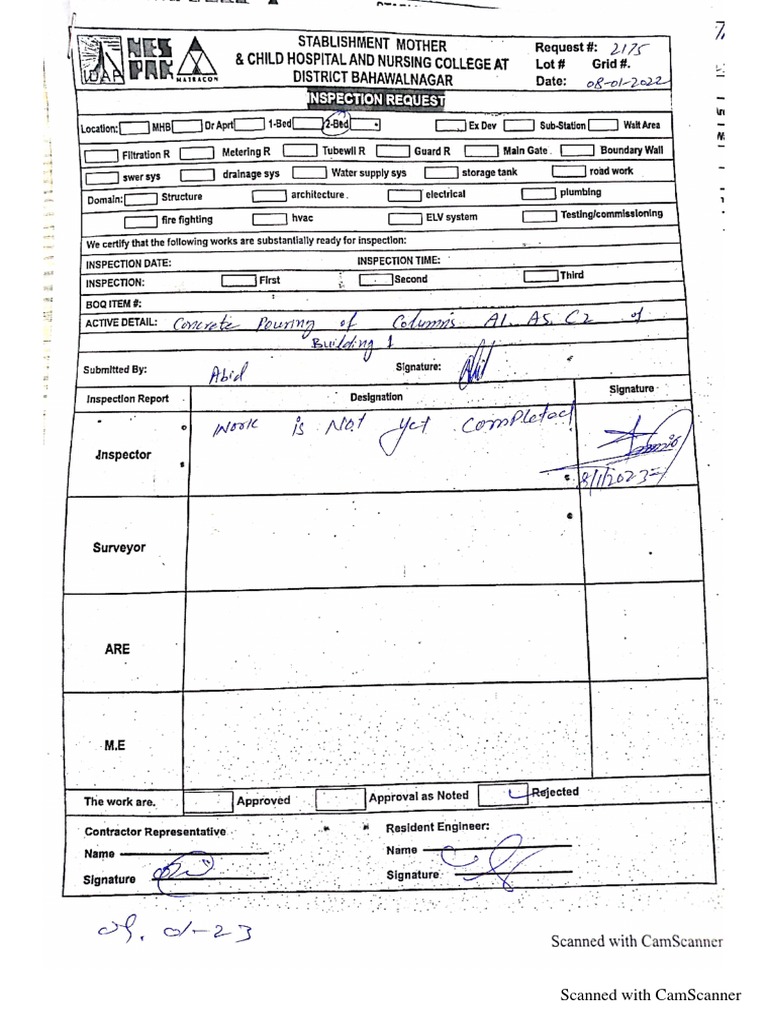 IDAP
NES
PAK
MATRACON
STABLISHMENT MOTHER
& CHILD HOSPITAL AND NURSING COLLEGE AT
DISTRICT BAHAWALNAGAR
Request #: 2175
Lot # Grid #.
Date: 08-01-2022
INSPECTION REQUEST
Location: MHB Dr Aprt 1-Bed 2-Bed Ex Dev Sub-Station Walt Area
Filtration R Metering R Tubewll R Guard R Main Gate Boundary Wall
swer sys drainage sys Water supply sys storage tank road work
Domain: Structure architecture. electrical plumbing
fire fighting hvac ELV system Testing/commissioning
We certify that the following works are substantially ready for inspection:
INSPECTION DATE: INSPECTION TIME:
INSPECTION: First Second Third
BOQ ITEM #:
ACTIVE DETAIL: Concrete Pouring of Columns A1, A5, C2 of
Building 1
Submitted By: Abid Signature:
Inspection Report Designation Signature
Inspector work is Not yet completed
8/1/2023
Surveyor
ARE
M.E
The work are. Approved Approval as Noted Rejected
Contractor Representative Resident Engineer:
Name Name
Signature Signature
09. 01-23
Scanned with CamScanner
Scanned with CamScanner